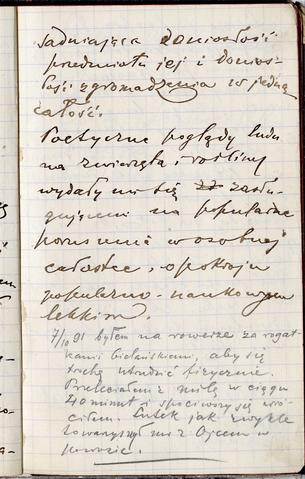 sadniająca doniosłość
przedmiotu jej i donios-
łość zgromadzenia w jedną
całość.
Poetyczne poglądy ludu
na zwierzęta i rośliny
wydały mi się zasłu-
gującemi na popularne
poruszenie w osobnej
całostce, o pokroju
popularno-naukowym
lekkim.
7/10 91 byłem na rowerze za rogat-
kami bielańskiemi, aby się
trochę utrudzić fizycznie.
Przeleciałem z milę w ciągu
40 minut i spocząwszy się wró-
ciłem. Lutek jak zwykle
towarzyszył mi z Ojcem w
powozie.